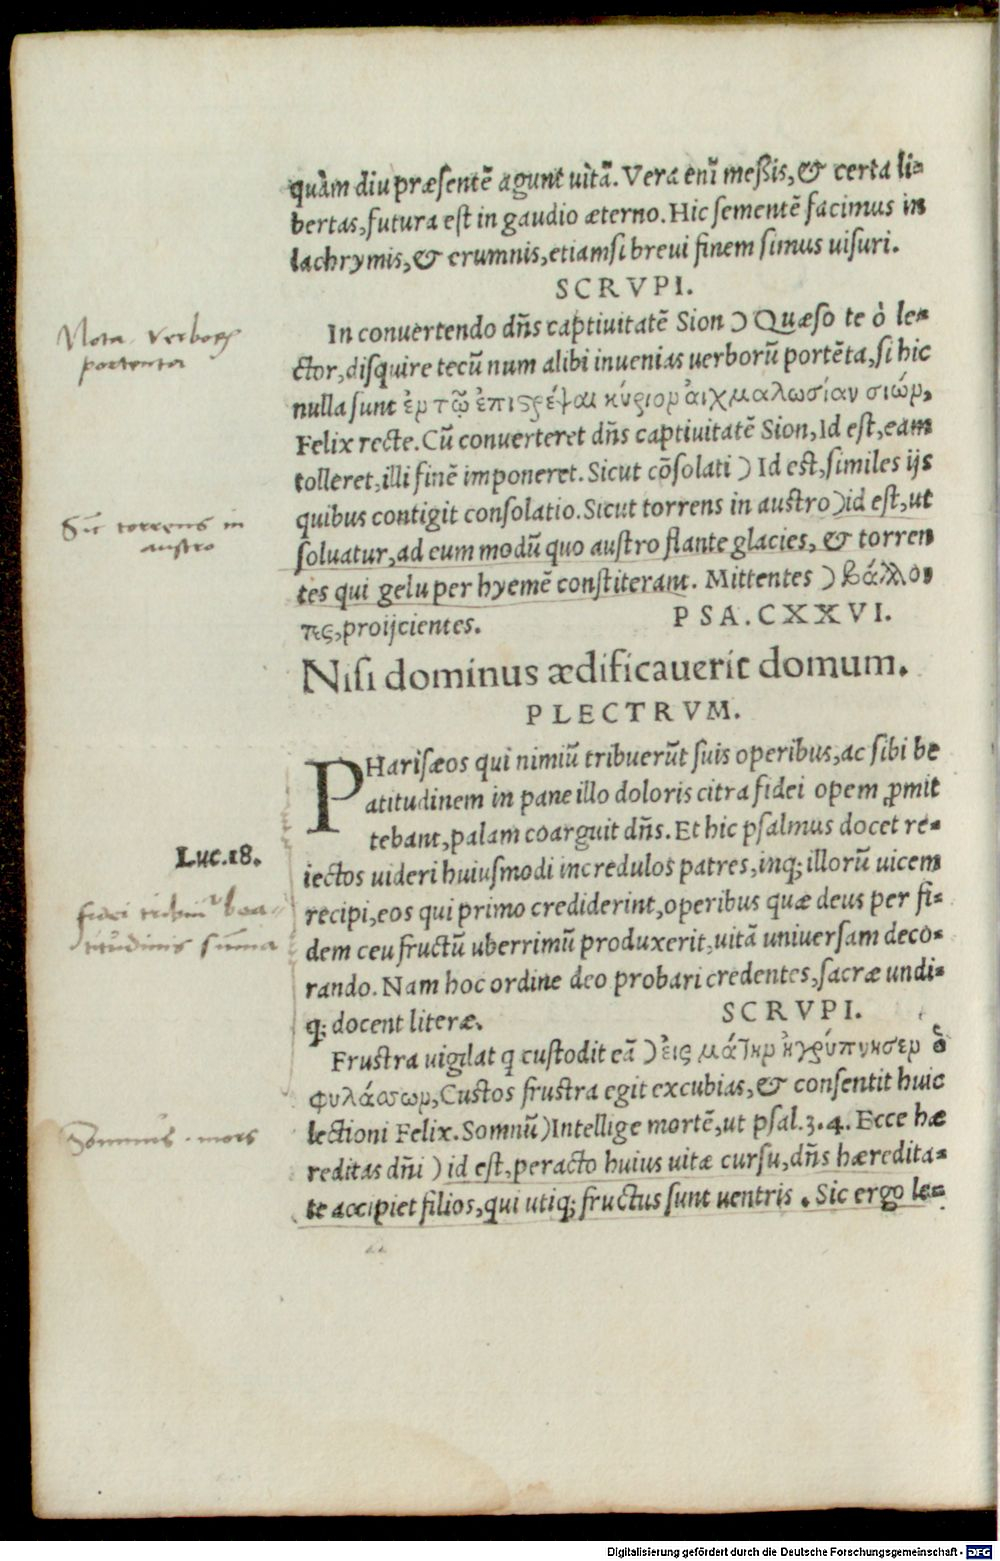 quàm diu præsentē agunt uìtā. Vera enī meßis, & certa li-
bertas, futura est in gaudio æterno. Hic sementē facimus in
lachrymis, & erumnis, etiamsi breui finem simus uisuri.
SCRVPI.
In conuertendo dn̄s captiuitatē Sion ) Quæso te ò le-
ctor, disquire tecū num alibi inuenias uerborū portēta, si hic
nulla sunt ἐν τῷ ἐπιστρέψαι κύριον αἰχμαλωσίαν σιών,
Felix recte. Cū conuerteret dn̄s captiuitatē Sion, Id est, eam
tolleret, illi finē imponeret. Sicut cōsolati ) Id est, similes ijs
quibus contigit consolatio. Sicut torrens in austro ) id est, ut
soluatur, ad eum modū quo austro flante glacies, & torren
tes qui gelu per hyemē constiterant. Mittentes ) βάλλον
τες, proijcientes.
PSA. CXXVI.
Nisi dominus ædificauerit domum.
PLECTRVM.
PHarisæos qui nimiū tribuerūt suis operibus, ac sibi be
atitudinem in pane illo doloris citra fidei opem ꝓmit
tebant, palam coarguit dn̄s. Et hic psalmus docet re-
iectos uideri huiusmodi incredulos patres, inq; illorū uicem
recipi, eos qui primo crediderint, operibus quæ deus per fi-
dem ceu fructū uberrimū produxerit, uitā uniuersam deco-
rando. Nam hoc ordine deo probari credentes, sacræ undi-
q; docent literæ.
SCRVPI.
Frustra uigilat q custodit eā ) εἰς μάτην ἠγρύπνησεν ὁ
φυλάσσων, Custos frustra egit excubias, & consentit huic
lectioni Felix. Somnū ) Intellige mortē, ut psal. 3. 4. Ecce hæ
reditas dn̄i ) id est, peracto huius uitæ cursu, dn̄s hæredita-
te accipiet filios, qui utiq; fructus sunt uentris. Sic ergo le-
Nota. verborꝝ
portenta
Sic torrens in
austro
Luc. 18.
fidei
titudinis sūma
Somnus. mors
Digitalisierung gefördert durch die Deutsche Forschungsgemeinschaft - DFG